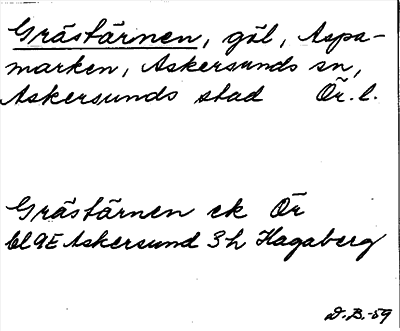 Grästärnen, göl, Aspa-
marken, Askersunds sn,
Askersunds stad Ör. l.
Grästärnen ek Ör
bl 9E Askersund 3h Hagaberg
D.B.-59